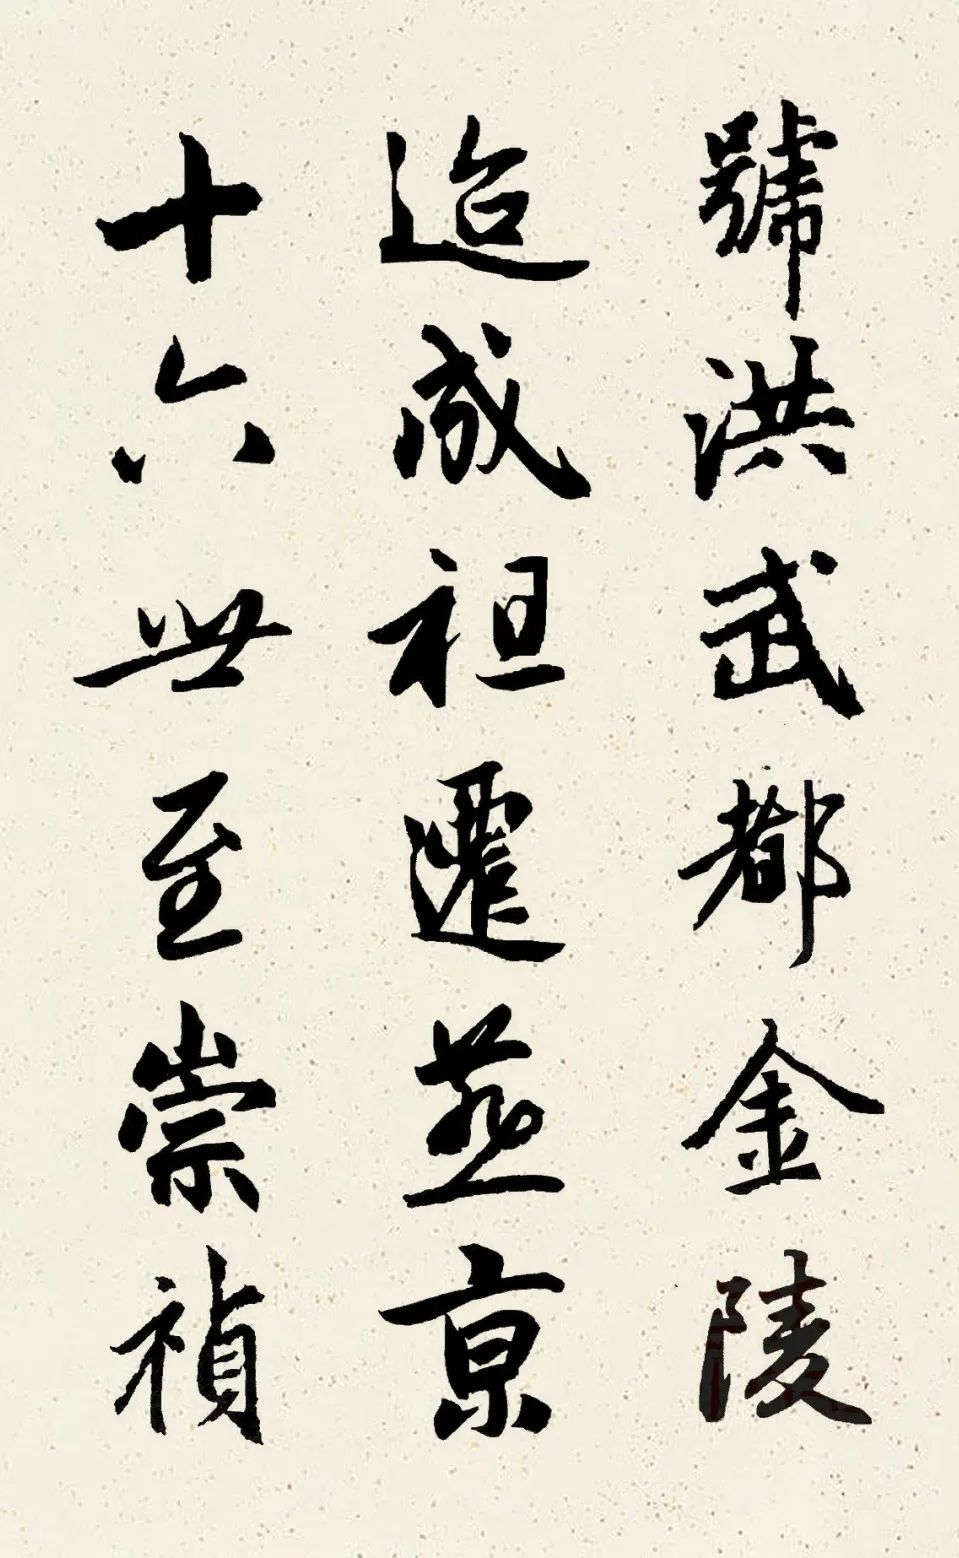 號洪武都金陵
迨成祖遷燕京
十六世至崇禎